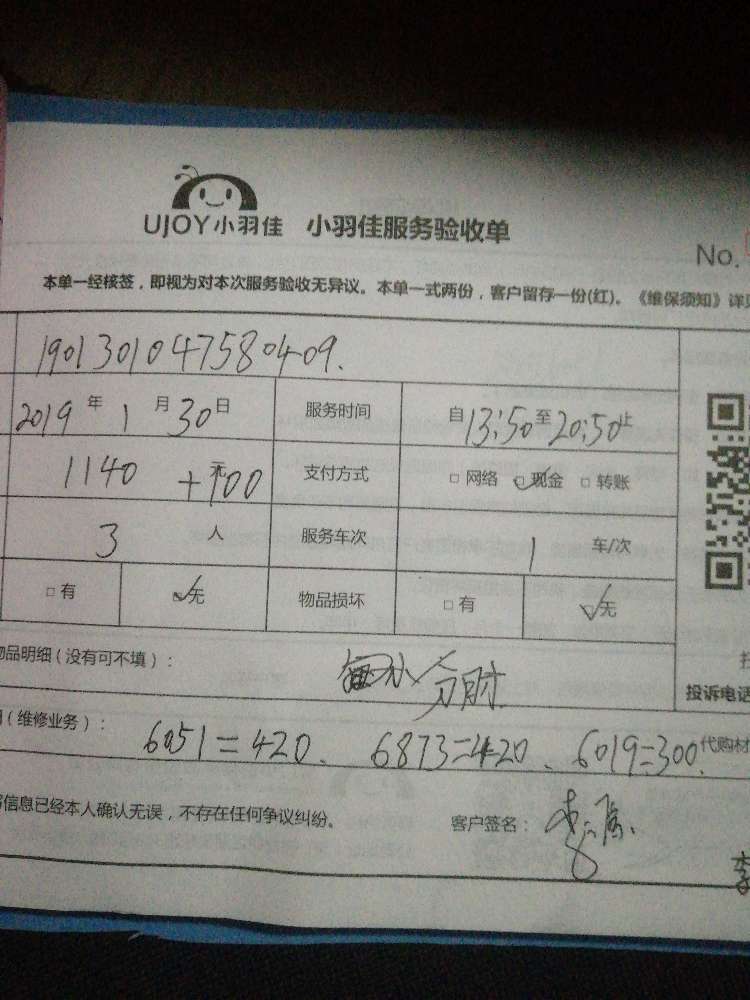 UJOY小羽佳 小羽佳服务验收单
No.
本单一经核签，即视为对本次服务验收无异议。本单一式两份，客户留存一份(红)。《维保须知》详
1901301047580409.
2019年1月30日 服务时间 自13:50至20:50止
1140元+100 支付方式 □网络 ☑现金 □转账
3人 服务车次 1 车/次
□有 ☑无 物品损坏 □有 ☑无
品明细(没有可不填)： 分时
投诉电话
(维修业务)： 6051=420、6873=420、6019=300、代购材
信息已经本人确认无误，不存在任何争议纠纷。 客户签名：